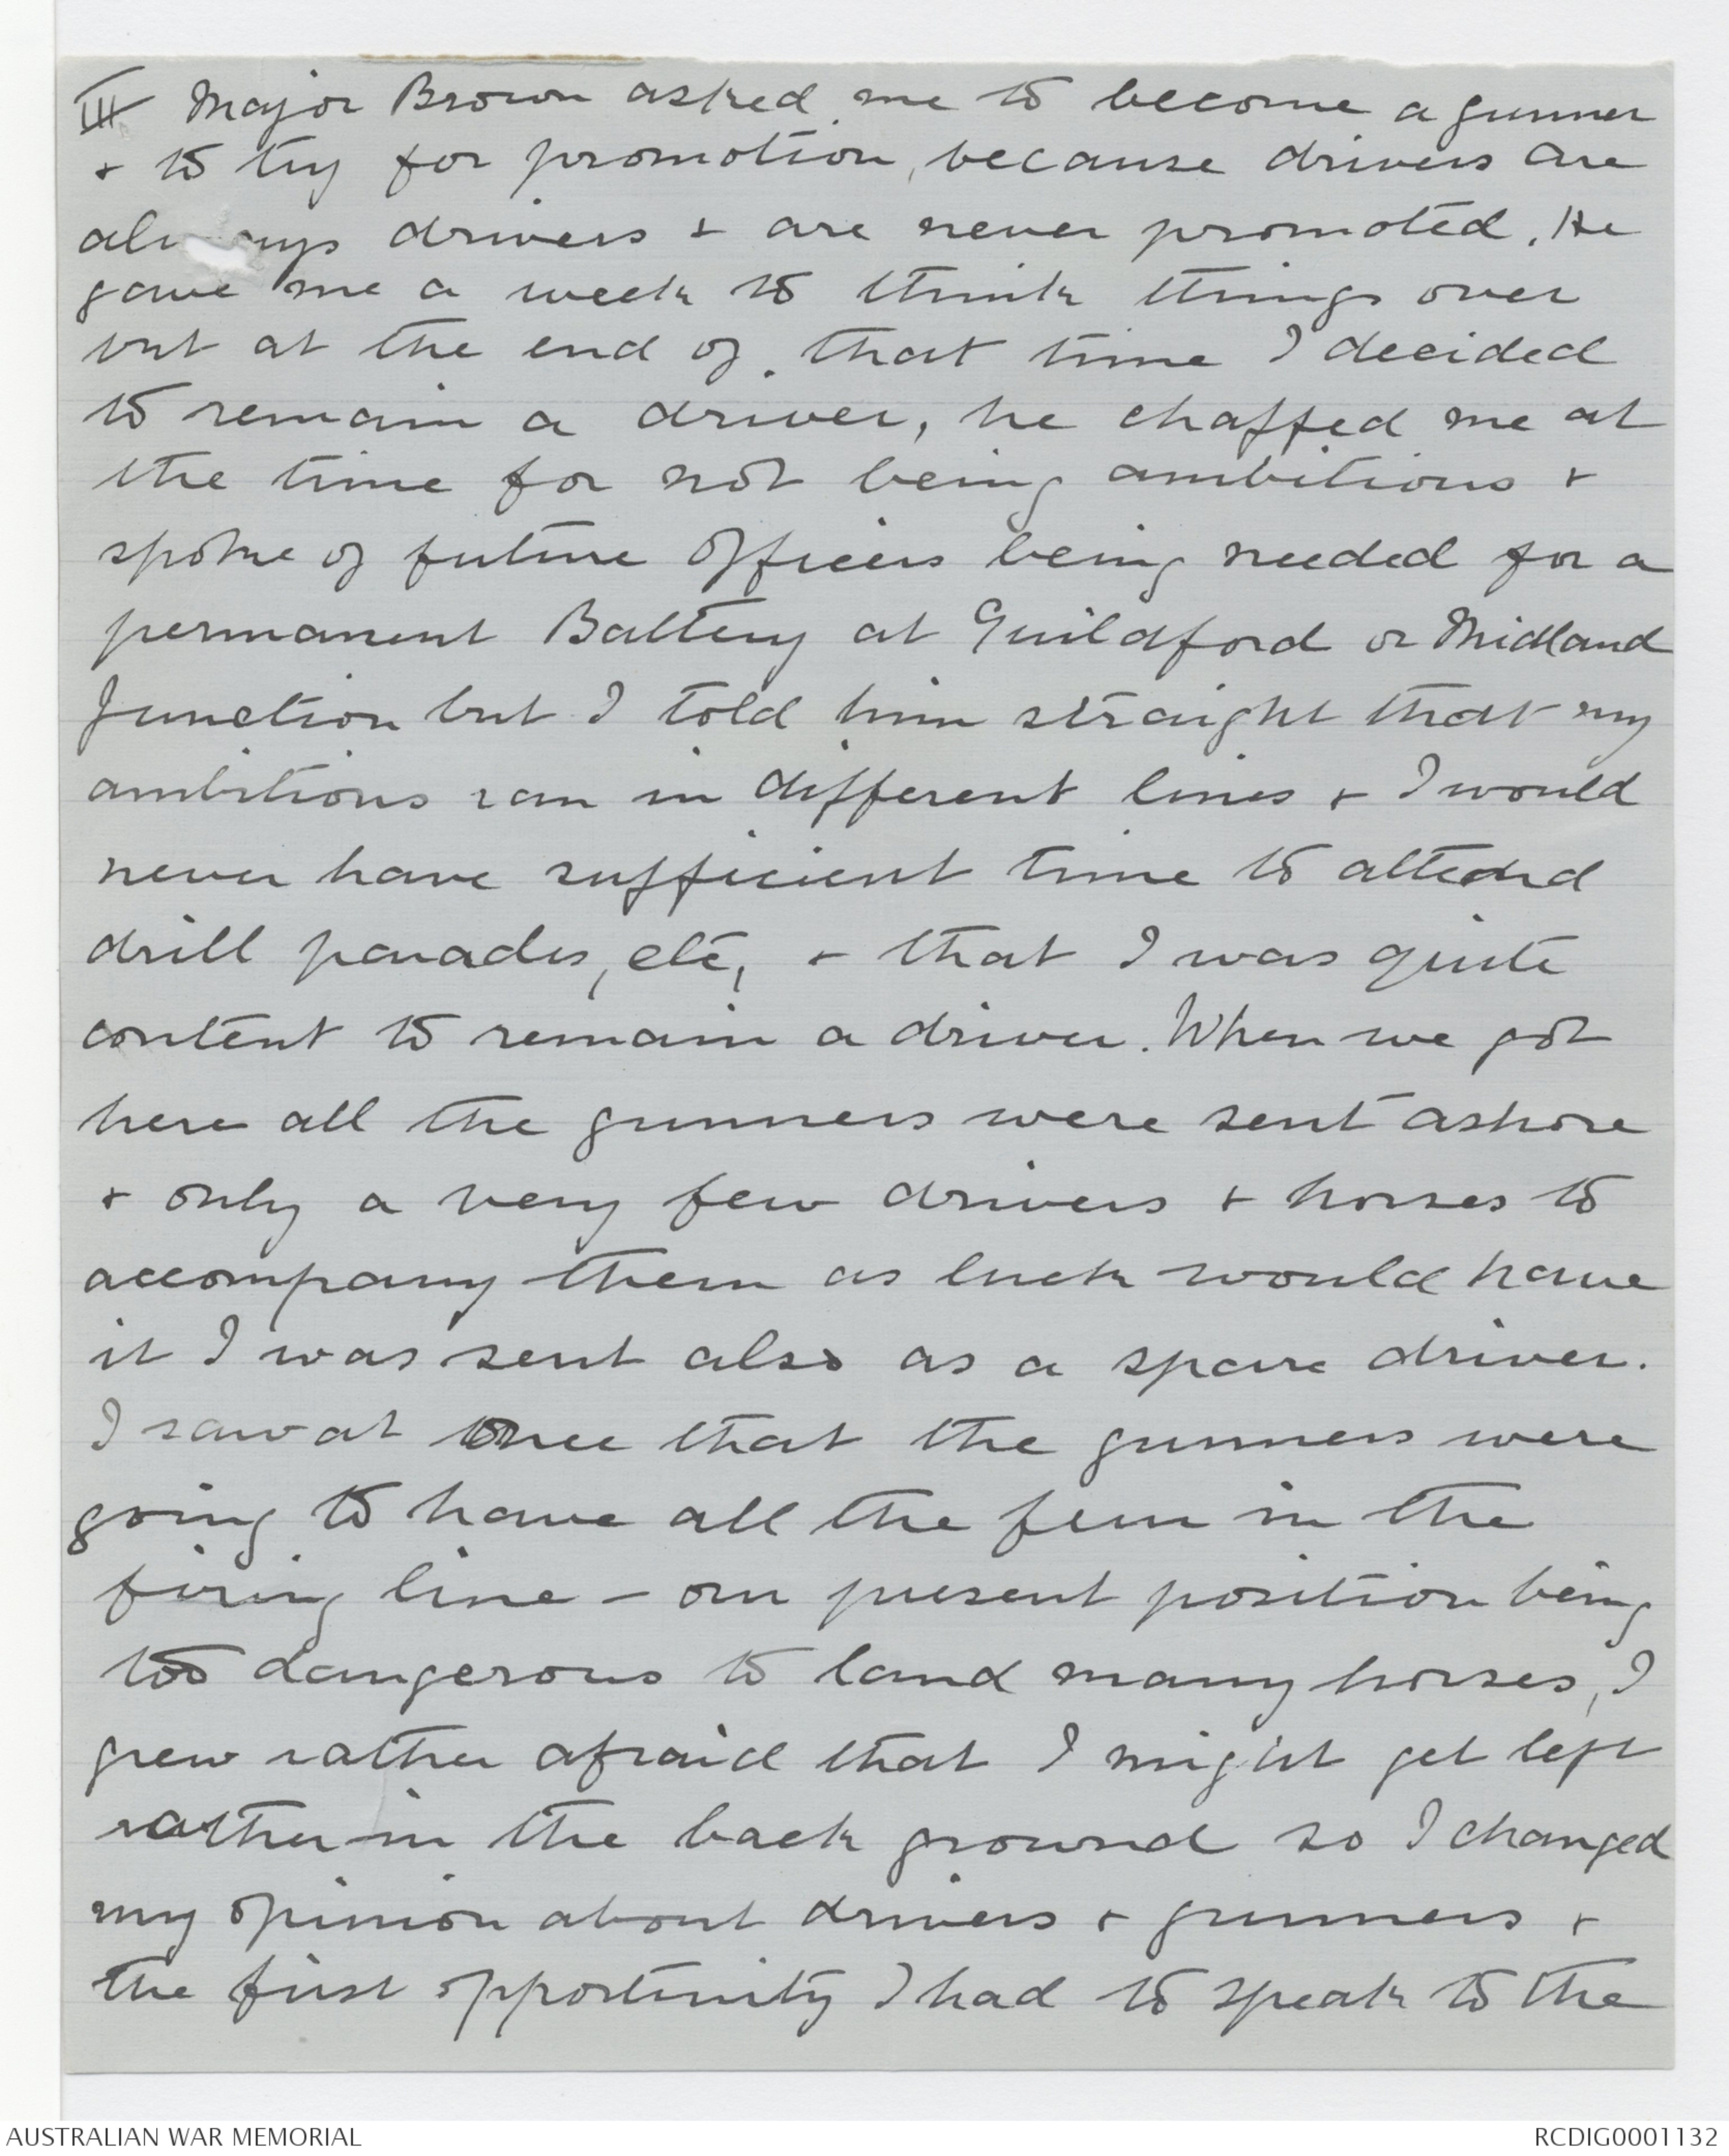 III Major Brown asked me to become a gunner
+ to try for promotion, because drivers are
always drivers + are never promoted. He
gave me a week to think things over
but at the end of that time I decided
to remain a driver, he chaffed me at
the time for not being ambitious +
spoke of future officers being needed for a
permanent Battery at Guildford or Midland
Junction but I told him straight that my
ambitions ran in different lines + I would
never have sufficient time to attend
drill parades, etc, + that I was quite
content to remain a driver. When we got
here all the gunners were sent ashore
+ only a very few drivers + horses to
accompany them as luck would have
it I was sent also as a spare driver.
I saw at once that the gunners were
going to have all the fun in the
firing line - our present position being
too dangerous to land many horses, I
grew rather afraid that I might get left
rather in the back ground so I changed
my opinion about drivers + gunners +
the first opportunity I had to speak to the
AUSTRALIAN WAR MEMORIAL
RCDIG0001132